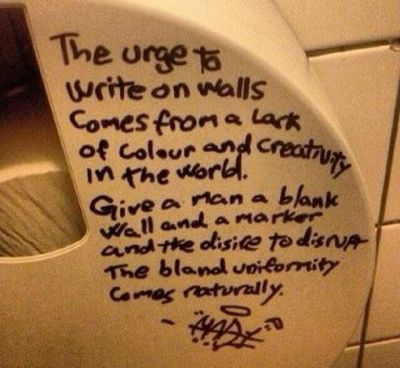 The urge to
write on walls
Comes from a Lack
of colour and creativity
in the world.
Give a man a blank
wall and a marker
and the disire to disrupt
The bland uniformity
Comes naturally.